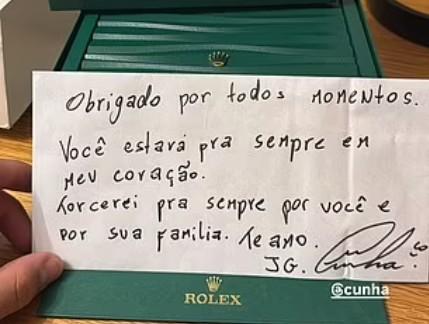 Obrigado por todos momentos.
Você estará pra sempre em
meu coração.
Torcerei pra sempre por você e
por sua família. Te amo.
JG. Cunha
@cunha
ROLEX